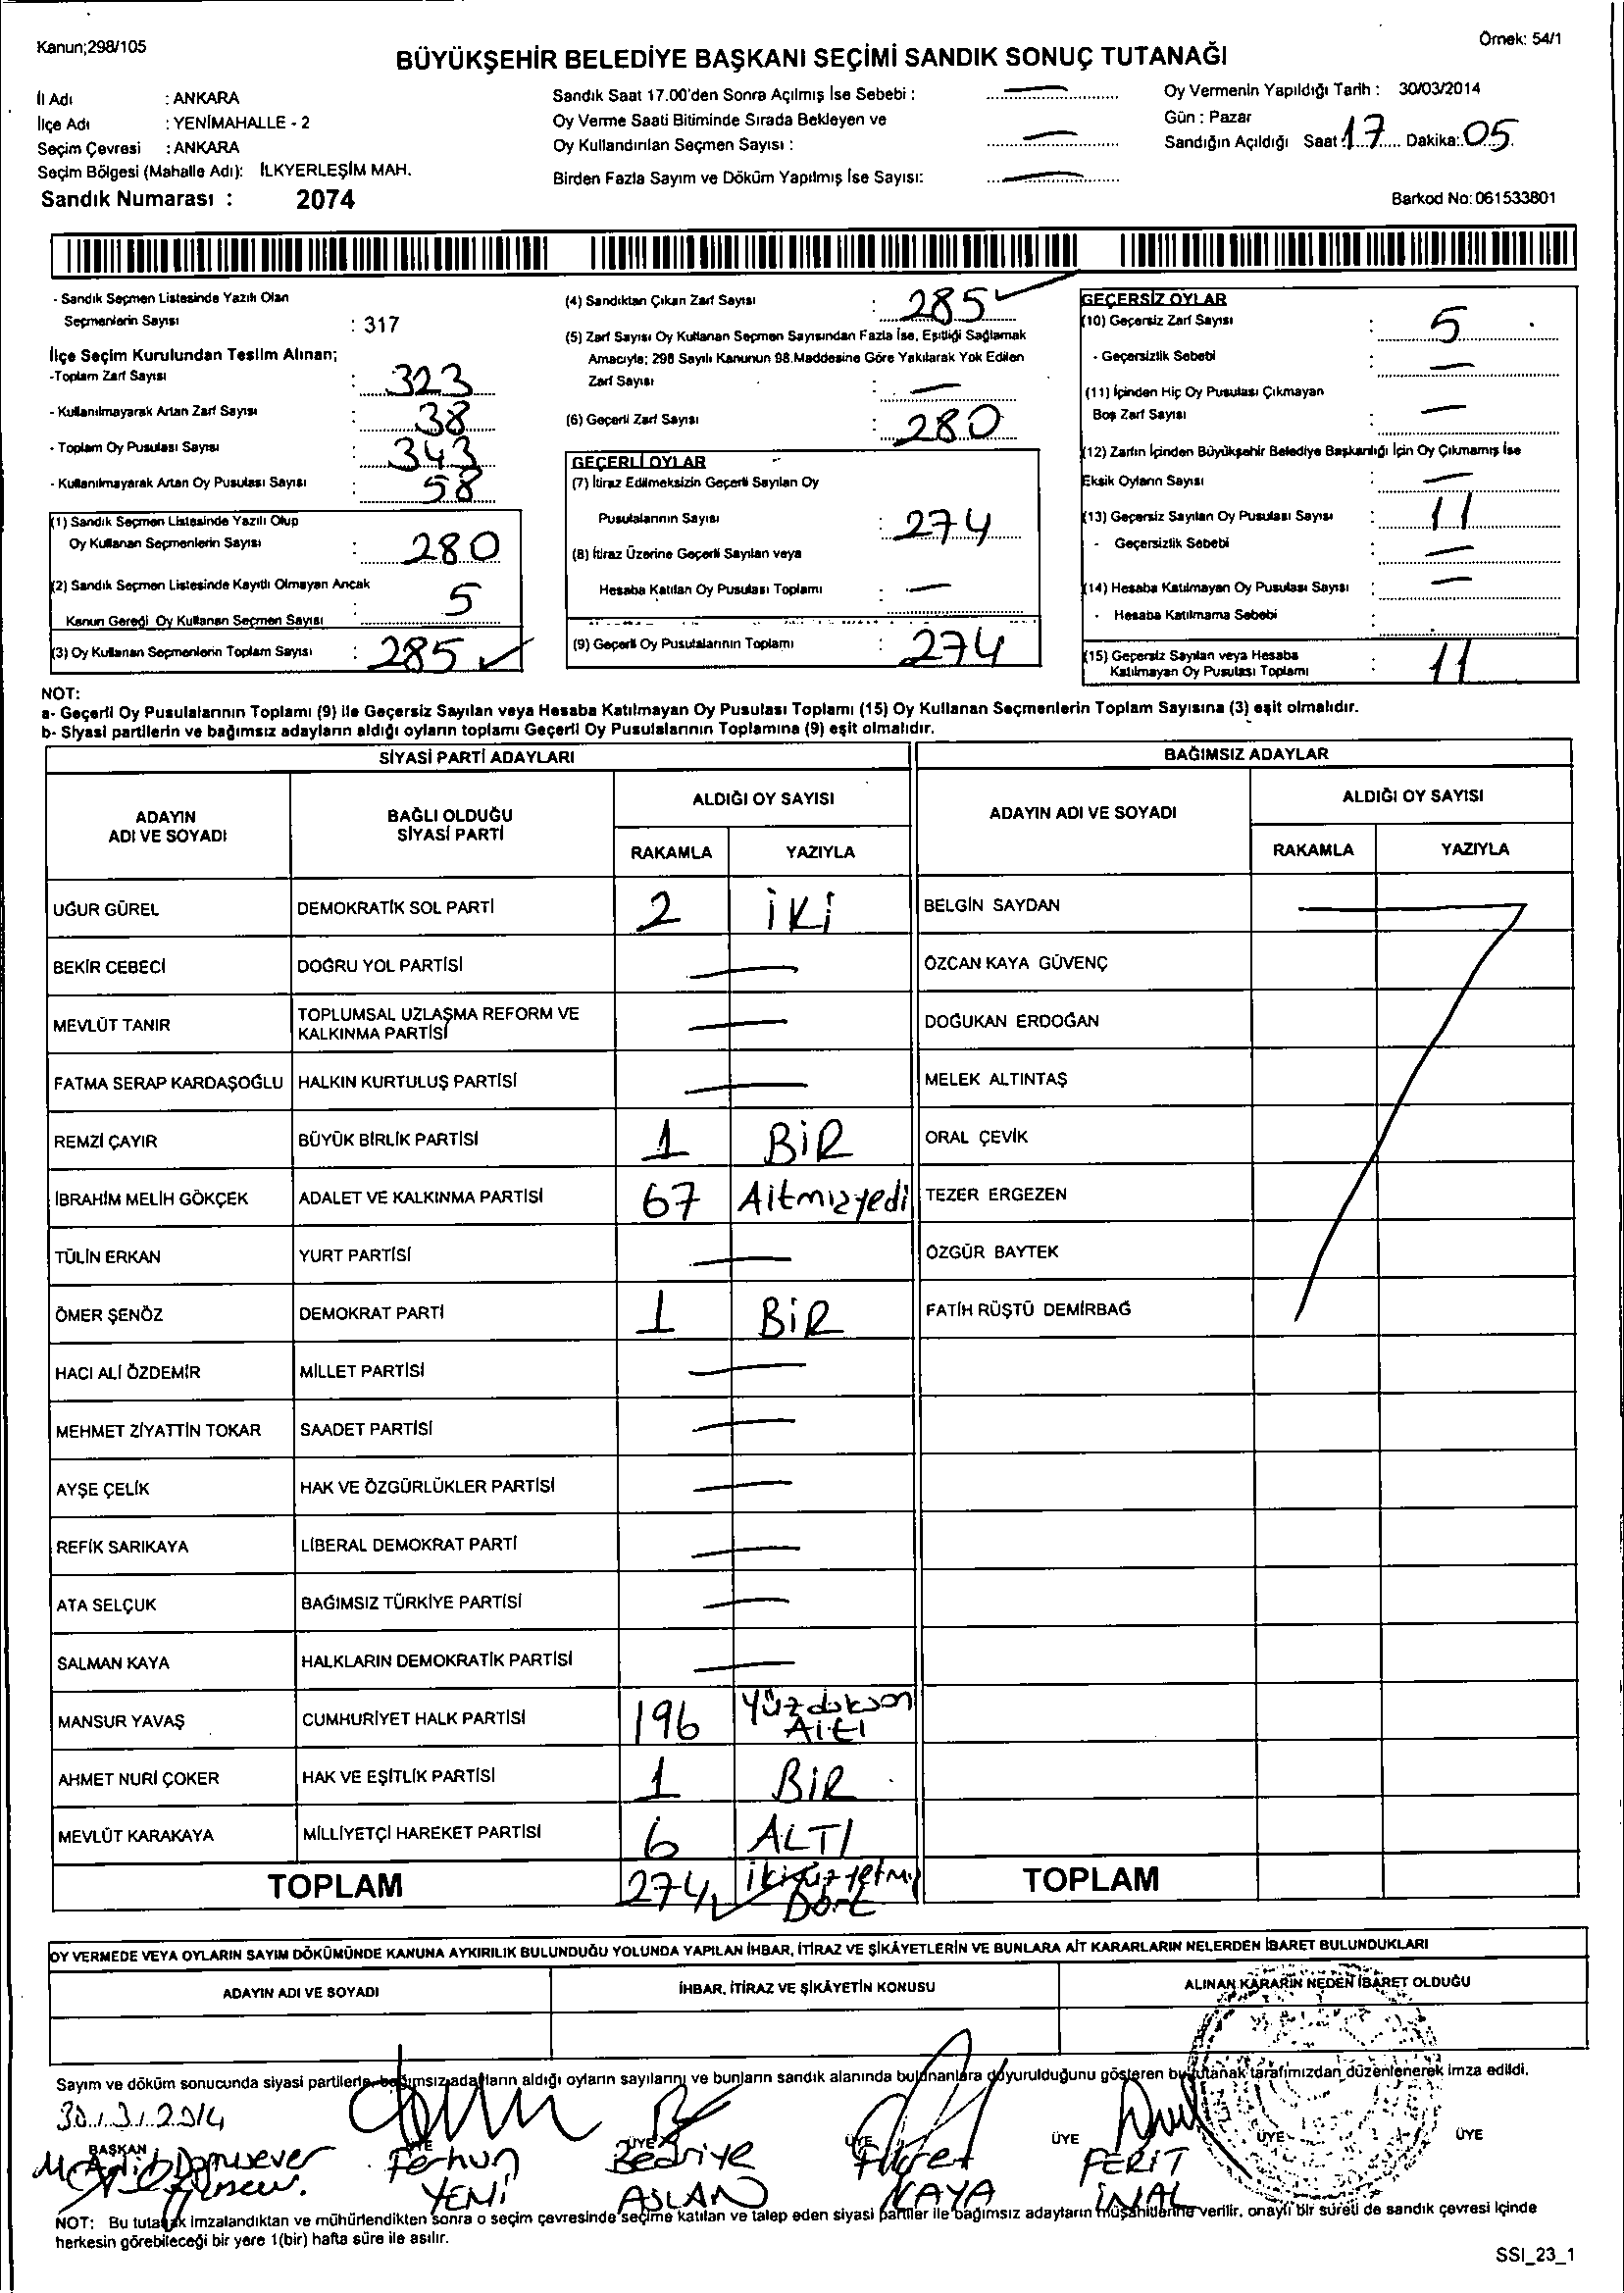 Kanun;298/105
Örnek: 54/1
BÜYÜKŞEHİR BELEDİYE BAŞKANI SEÇİMİ SANDIK SONUÇ TUTANAĞI
İl Adı : ANKARA
İlçe Adı : YENİMAHALLE - 2
Seçim Çevresi : ANKARA
Seçim Bölgesi (Mahalle Adı): İLKYERLEŞİM MAH.
Sandık Numarası : 2074
Sandık Saat 17.00'den Sonra Açılmış İse Sebebi :
Oy Verme Saati Bitiminde Sırada Bekleyen ve
Oy Kullandırılan Seçmen Sayısı :
Birden Fazla Sayım ve Döküm Yapılmış İse Sayısı:
Oy Vermenin Yapıldığı Tarih : 30/03/2014
Gün : Pazar
Sandığın Açıldığı Saat 17 Dakika: 05
Barkod No: 061533801
- Sandık Seçmen Listesinde Yazılı Olan
Seçmenlerin Sayısı : 317
İlçe Seçim Kurulundan Teslim Alınan;
-Toplam Zarf Sayısı : 323
- Kullanılmayarak Artan Zarf Sayısı : 38
- Toplam Oy Pusulası Sayısı : 343
- Kullanılmayarak Artan Oy Pusulası Sayısı : 58
(1) Sandık Seçmen Listesinde Yazılı Olup
Oy Kullanan Seçmenlerin Sayısı : 280
(2) Sandık Seçmen Listesinde Kayıtlı Olmayan Ancak
Kanun Gereği Oy Kullanan Seçmen Sayısı : 5
(3) Oy Kullanan Seçmenlerin Toplam Sayısı : 285
(4) Sandıktan Çıkan Zarf Sayısı : 285
(5) Zarf Sayısı Oy Kullanan Seçmen Sayısından Fazla İse, Eşitliği Sağlamak
Amacıyla; 298 Sayılı Kanunun 98.Maddesine Göre Yakılarak Yok Edilen
Zarf Sayısı : —
(6) Geçerli Zarf Sayısı : 280
GEÇERLİ OYLAR
(7) İtiraz Edilmeksizin Geçerli Sayılan Oy
Pusulalarının Sayısı : 274
(8) İtiraz Üzerine Geçerli Sayılan veya
Hesaba Katılan Oy Pusulası Toplamı : —
(9) Geçerli Oy Pusulalarının Toplamı : 274
GEÇERSİZ OYLAR
(10) Geçersiz Zarf Sayısı : 5
- Geçersizlik Sebebi : —
(11) İçinden Hiç Oy Pusulası Çıkmayan
Boş Zarf Sayısı : —
(12) Zarfın İçinden Büyükşehir Belediye Başkanlığı İçin Oy Çıkmamış İse
Eksik Oyların Sayısı : —
(13) Geçersiz Sayılan Oy Pusulası Sayısı : 11
- Geçersizlik Sebebi : —
(14) Hesaba Katılmayan Oy Pusulası Sayısı : —
- Hesaba Katılmama Sebebi :
(15) Geçersiz Sayılan veya Hesaba
Katılmayan Oy Pusulası Toplamı : 11
NOT:
a- Geçerli Oy Pusulalarının Toplamı (9) ile Geçersiz Sayılan veya Hesaba Katılmayan Oy Pusulası Toplamı (15) Oy Kullanan Seçmenlerin Toplam Sayısına (3) eşit olmalıdır.
b- Siyasi partilerin ve bağımsız adayların aldığı oyların toplamı Geçerli Oy Pusulalarının Toplamına (9) eşit olmalıdır.
SİYASİ PARTİ ADAYLARI
ADAYIN ADI VE SOYADI
BAĞLI OLDUĞU SİYASİ PARTİ
ALDIĞI OY SAYISI
RAKAMLA YAZIYLA
UĞUR GÜREL DEMOKRATİK SOL PARTİ 2 İKİ
BEKİR CEBECİ DOĞRU YOL PARTİSİ —
MEVLÜT TANIR TOPLUMSAL UZLAŞMA REFORM VE KALKINMA PARTİSİ —
FATMA SERAP KARDAŞOĞLU HALKIN KURTULUŞ PARTİSİ —
REMZİ ÇAYIR BÜYÜK BİRLİK PARTİSİ 1 BİR
İBRAHİM MELİH GÖKÇEK ADALET VE KALKINMA PARTİSİ 67 Altmışyedi
TÜLİN ERKAN YURT PARTİSİ —
ÖMER ŞENÖZ DEMOKRAT PARTİ 1 BİR
HACI ALİ ÖZDEMİR MİLLET PARTİSİ —
MEHMET ZİYATTİN TOKAR SAADET PARTİSİ —
AYŞE ÇELİK HAK VE ÖZGÜRLÜKLER PARTİSİ —
REFİK SARIKAYA LİBERAL DEMOKRAT PARTİ —
ATA SELÇUK BAĞIMSIZ TÜRKİYE PARTİSİ —
SALMAN KAYA HALKLARIN DEMOKRATİK PARTİSİ —
MANSUR YAVAŞ CUMHURİYET HALK PARTİSİ 196 Yüzdoksan Altı
AHMET NURİ ÇOKER HAK VE EŞİTLİK PARTİSİ 1 BİR
MEVLÜT KARAKAYA MİLLİYETÇİ HAREKET PARTİSİ 6 ALTI
TOPLAM 274 ikiyüzyetmiş Dört
BAĞIMSIZ ADAYLAR
ADAYIN ADI VE SOYADI
ALDIĞI OY SAYISI
RAKAMLA YAZIYLA
BELGİN SAYDAN
ÖZCAN KAYA GÜVENÇ
DOĞUKAN ERDOĞAN
MELEK ALTINTAŞ
ORAL ÇEVİK
TEZER ERGEZEN
ÖZGÜR BAYTEK
FATİH RÜŞTÜ DEMİRBAĞ
TOPLAM
OY VERMEDE VEYA OYLARIN SAYIM DÖKÜMÜNDE KANUNA AYKIRILIK BULUNDUĞU YOLUNDA YAPILAN İHBAR, İTİRAZ VE ŞİKÂYETLERİN VE BUNLARA AİT KARARLARIN NELERDEN İBARET BULUNDUKLARI
ADAYIN ADI VE SOYADI
İHBAR, İTİRAZ VE ŞİKÂYETİN KONUSU
ALINAN KARARIN NEDEN İBARET OLDUĞU
Sayım ve döküm sonucunda siyasi partilerle bağımsız adayların aldığı oyların sayılarını ve bunların sandık alanında bulunanlara duyurulduğunu gösteren bu tutanak tarafımızdan düzenlenerek imza edildi.
30/3/2014
BAŞKAN ÜYE ÜYE ÜYE ÜYE ÜYE ÜYE
Ferhun YENİ
Bedriye ASLAN
Fikret KAYA
FERİT İNAL
NOT: Bu tutanak imzalandıktan ve mühürlendikten sonra o seçim çevresinde seçime katılan ve talep eden siyasi partiler ile bağımsız adayların müşahitlerine verilir, onaylı bir sureti de sandık çevresi içinde
herkesin görebileceği bir yere 1(bir) hafta süre ile asılır.
SSI_23_1